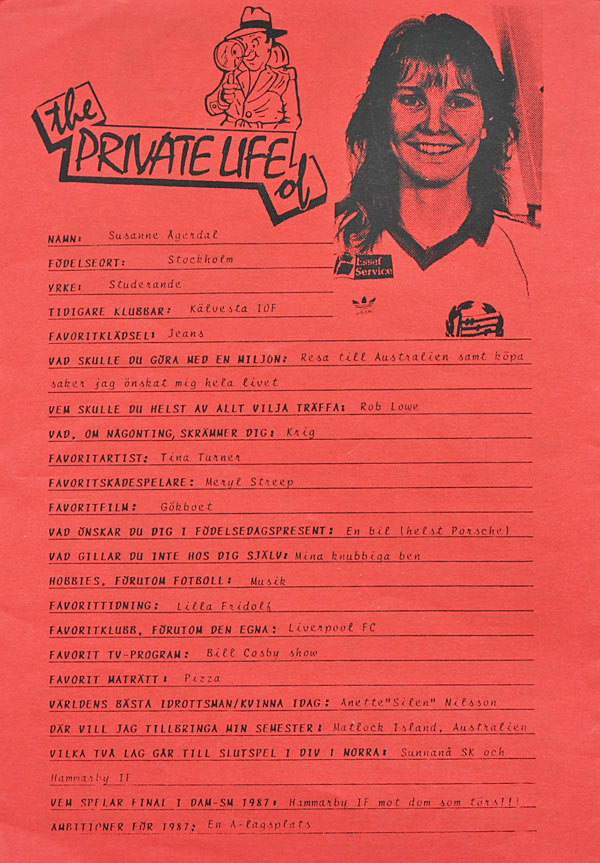 the
PRIVATE LIFE
of
Esset
Service
adidas
NAMN: Susanne Agerdal
FÖDELSEORT: Stockholm
YRKE: Studerande
TIDIGARE KLUBBAR: Kälvesta IOF
FAVORITKLÄDSEL: Jeans
VAD SKULLE DU GÖRA MED EN MILJON: Resa till Australien samt köpa
saker jag önskat mig hela livet
VEM SKULLE DU HELST AV ALLT VILJA TRÄFFA: Rob Lowe
VAD, OM NÅGONTING, SKRÄMMER DIG: Krig
FAVORITARTIST: Tina Turner
FAVORITSKÅDESPELARE: Meryl Streep
FAVORITFILM: Gökboet
VAD ÖNSKAR DU DIG I FÖDELSEDAGSPRESENT: En bil (helst Porsche)
VAD GILLAR DU INTE HOS DIG SJÄLV: Mina knubbiga ben
HOBBIES, FÖRUTOM FOTBOLL: Musik
FAVORITTIDNING: Lilla Fridolf
FAVORITKLUBB, FÖRUTOM DEN EGNA: Liverpool FC
FAVORIT TV-PROGRAM: Bill Cosby show
FAVORIT MATRÄTT: Pizza
VÄRLDENS BÄSTA IDROTTSMAN/KVINNA IDAG: Anette"Silen" Nilsson
DÄR VILL JAG TILLBRINGA MIN SEMESTER: Matlock Island, Australien
VILKA TVÅ LAG GÅR TILL SLUTSPEL I DIV I NORRA: Sunnanå SK och
Hammarby IF
VEM SPELAR FINAL I DAM-SM 1987: Hammarby IF mot dom som törs!!!
AMBITIONER FÖR 1987: En A-lagsplats